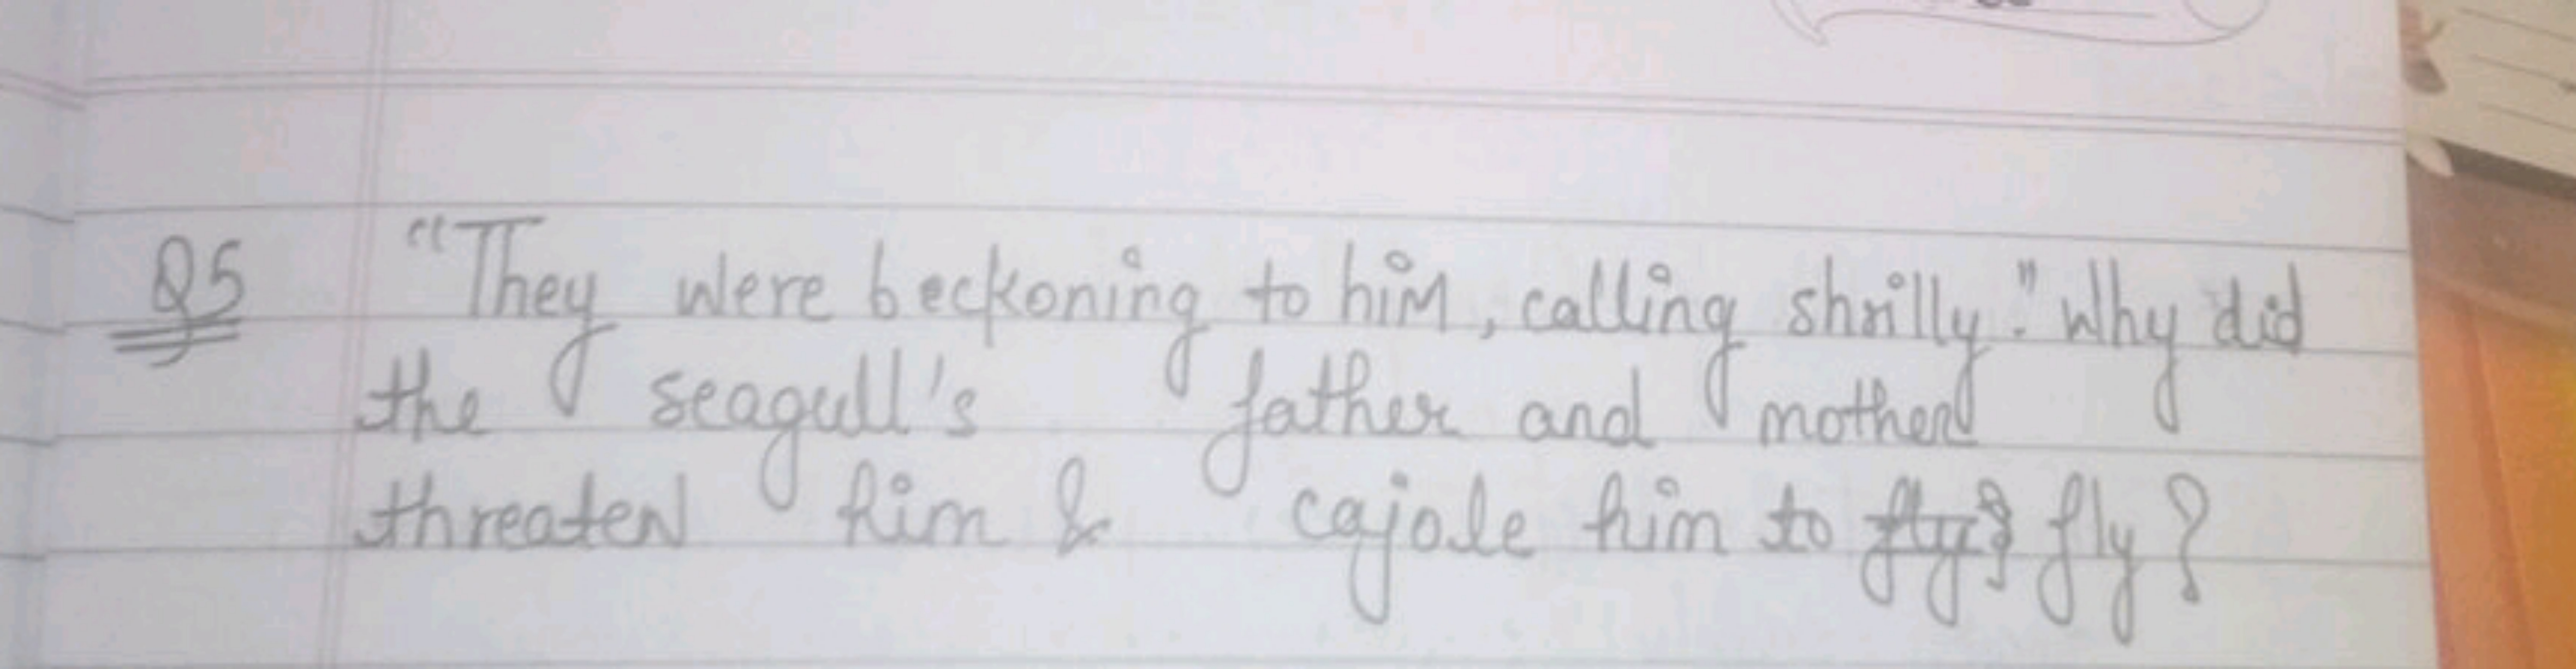 Q5 "They were beckoning to him, calling shrilly." Why did
the seagull's father and mother
threaten him & cajole him to fly? fly?